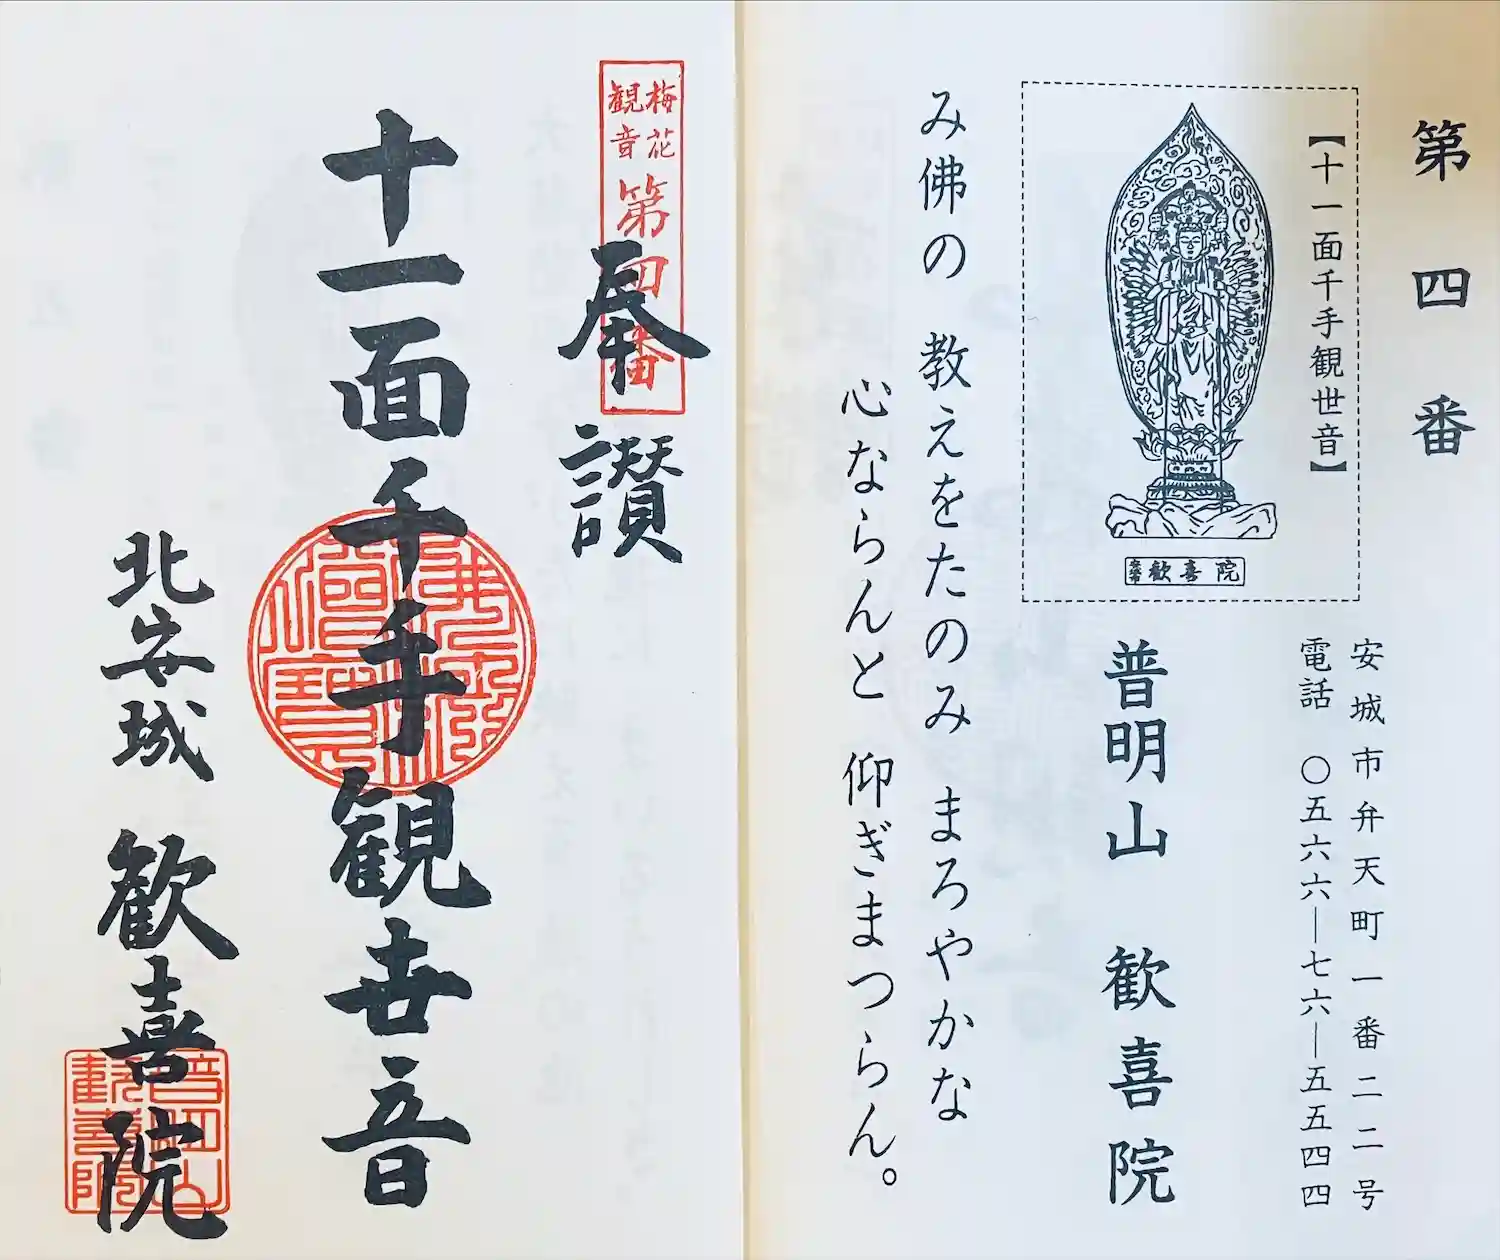 第四番
【十一面千手観世音】
歓喜院
安城市弁天町一番二二号
電話 〇五六六―七六―五五四四
普明山 歓喜院
み佛の 教えをたのみ まろやかな
心ならんと 仰ぎまつらん。
梅花
観音
第四番
奉讃
十一面千手観世音
北安城 歓喜院
普明山
歓喜院